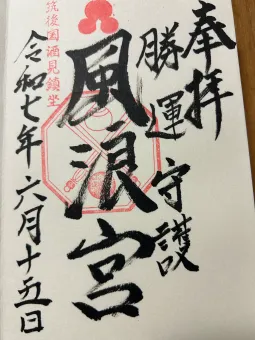 奉拝
勝運守護
風浪宮
筑後国酒見鎮坐
令和七年六月十五日